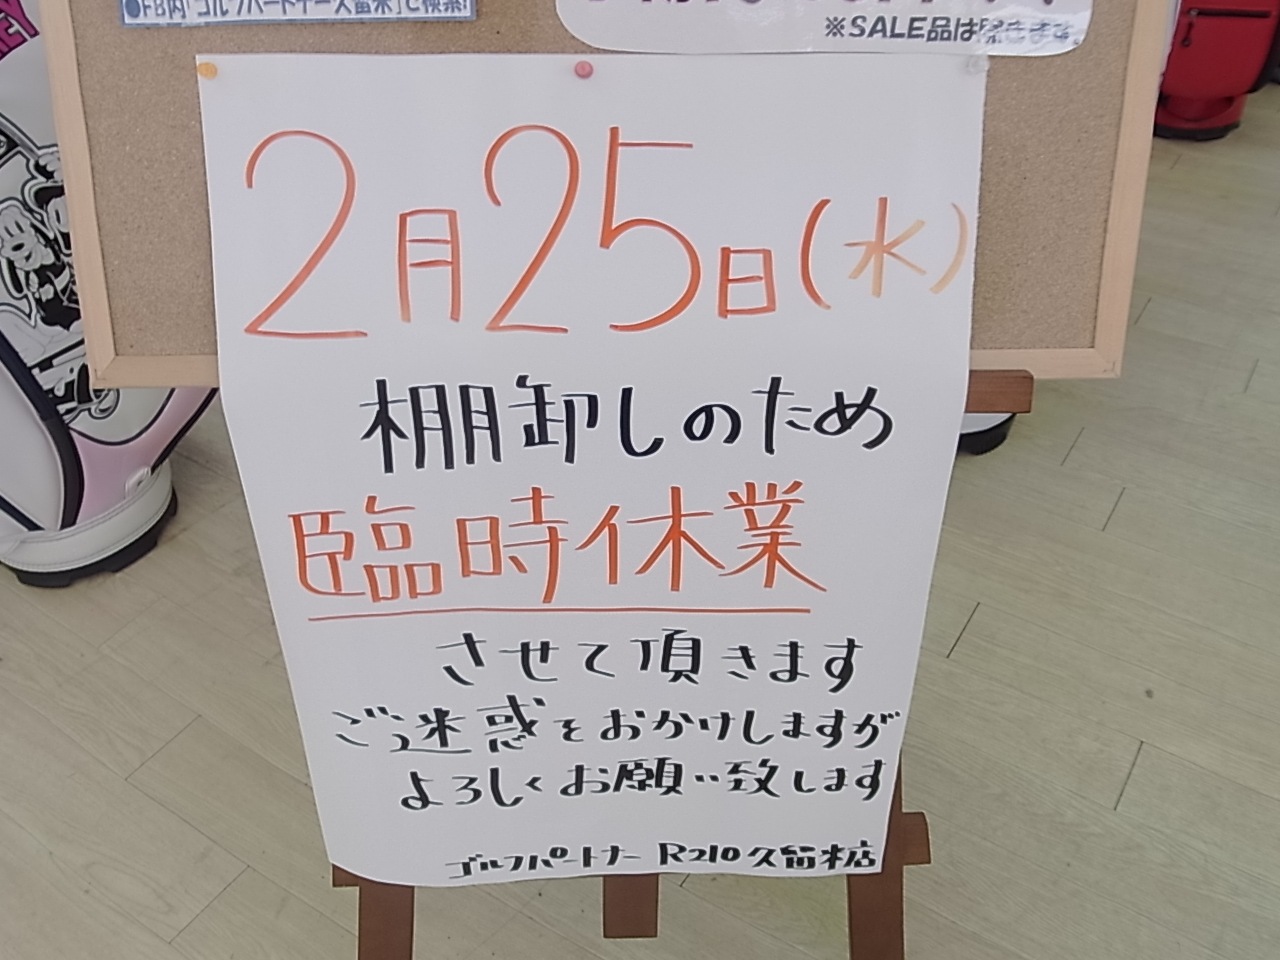 ●FB内「ゴルフパートナー久留米」で検索!
※SALE品は除きます。
2月25日(水)
棚卸しのため
臨時休業
させて頂きます
ご迷惑をおかけしますが
よろしくお願い致します
ゴルフパートナー R210久留米店